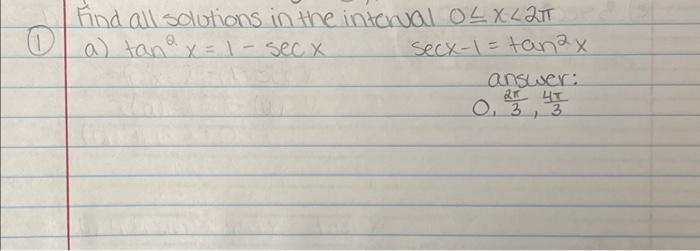 Find all solutions in the interval 0 ≤ x < 2π
① a) tan² x = 1 - sec x secx - 1 = tan² x
answer:
0, 2π/3, 4π/3